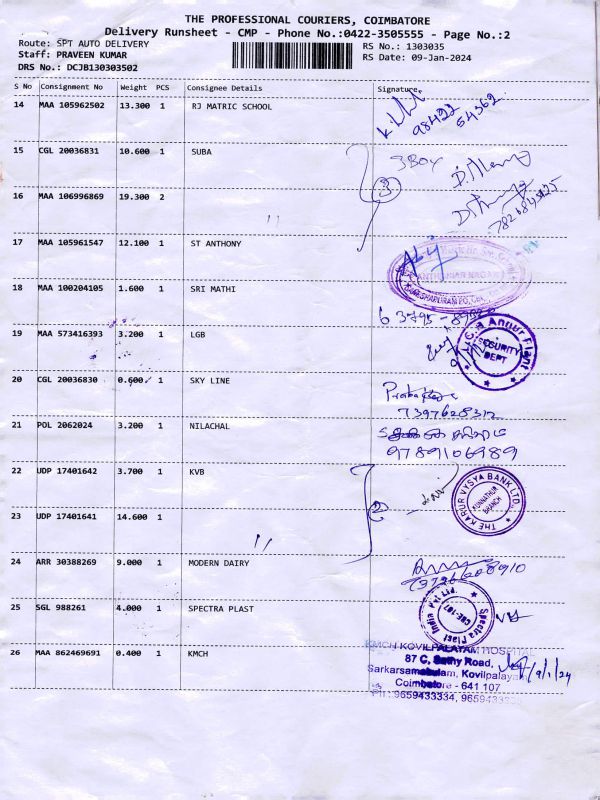 THE PROFESSIONAL COURIERS, COIMBATORE
Delivery Runsheet - CMP - Phone No.:0422-3505555 - Page No.:2
Route: SPT AUTO DELIVERY
RS No.: 1303035
Staff: PRAVEEN KUMAR
RS Date: 09-Jan-2024
DRS No.: DCJB130303502
S No Consignment No Weight PCS Consignee Details Signature
14 MAA 105962502 13.300 1 RJ MATRIC SCHOOL
98422 64362
15 CGL 20036831 10.600 1 SUBA
3 BOX
16 MAA 106996869 19.300 2 〃
3
17 MAA 105961547 12.100 1 ST ANTHONY
18 MAA 100204105 1.600 1 SRI MATHI
19 MAA 573416393 3.200 1 LGB
Annur Plant
SECURITY
DEPT
20 CGL 20036830 0.600 1 SKY LINE
7397628312
21 POL 2062024 3.200 1 NILACHAL
9789106989
22 UDP 17401642 3.700 1 KVB
THE KARUR VYSYA BANK LTD.
KUNNATHUR
BRANCH
2
23 UDP 17401641 14.600 1 〃
24 ARR 30388269 9.000 1 MODERN DAIRY
25 SGL 988261 4.000 1 SPECTRA PLAST
Spectra Plast India Pvt Ltd.
CBE-107
26 MAA 862469691 0.400 1 KMCH
KMCH KOVILPALAYAM HOSPITAL
87 C, Sathy Road,
Sarkarsamakulam, Kovilpalayam
9/1/24
Coimbatore - 641 107
PH: 9659433334,